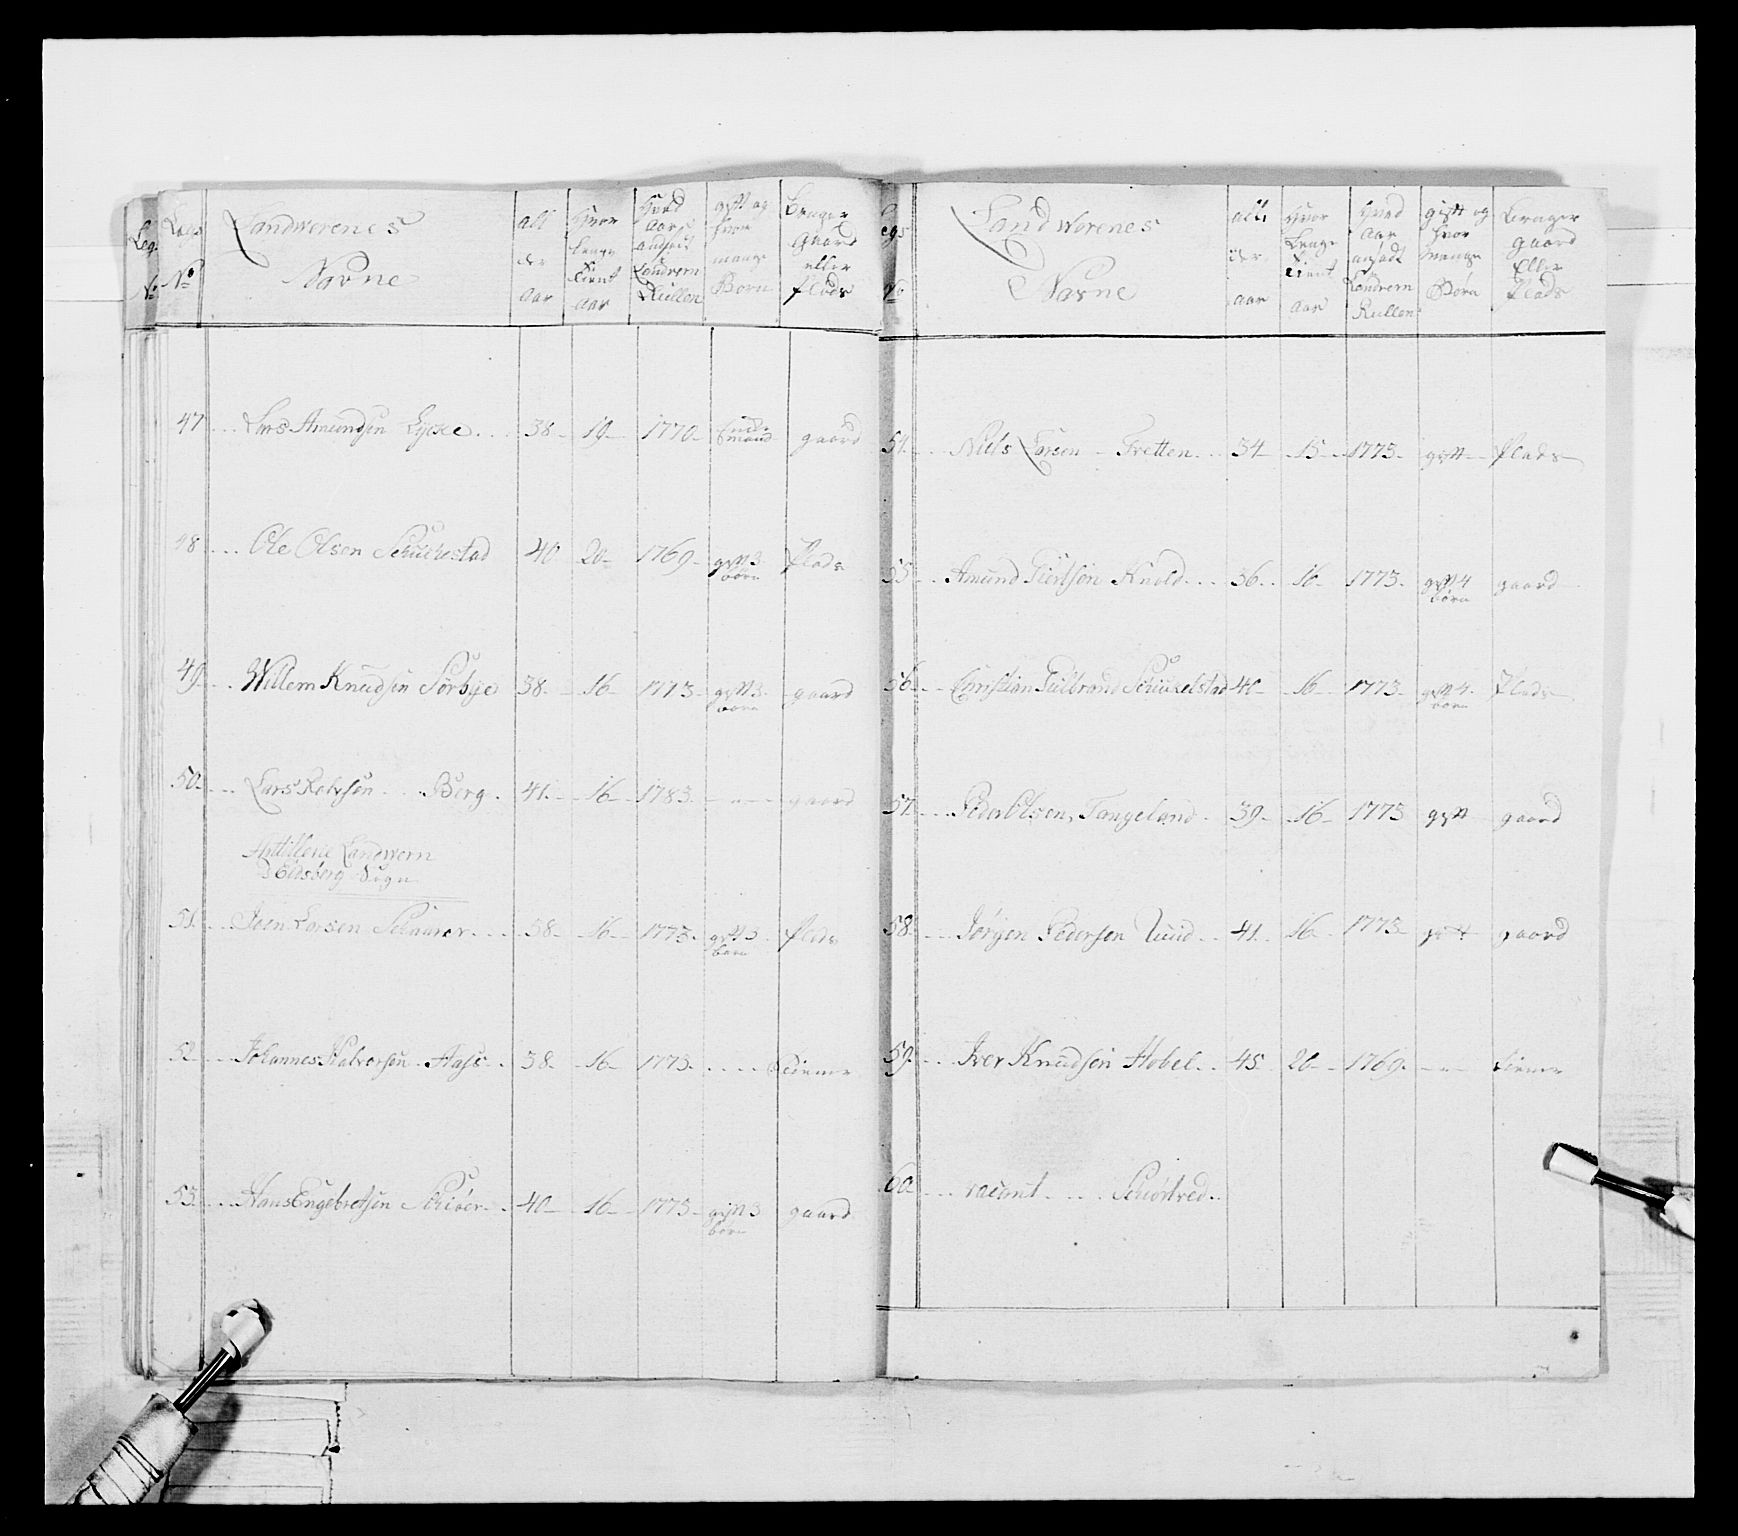 Legs No Landwerenes Navne all der Aar Hvor Lenge Tient Aar Hvad Aar ansadt Landvern Rullen gift og hvor mange Børn Bruger Gaard eller plads
47 Lars Amundsen Lycke 38 19 1770 Enke mand gaard
48 Ole Olsen 40 20 1769 gift 3 børn plads
49 Willem Knudsen Sørbye 38 16 1773 gift 3 børn gaard
50 Lars Berg 41 16 1783 gaard
Artillerie Landvern
Eidsberg Sogn
51 Joen Larsen 38 16 1773 gift 3 børn plads
52 Johannes Halvorsen 38 16 1773 Tiener
53 Hans Engebretsen 40 16 1773 gift 3 børn gaard
Legs No Landwerenes Navne all der aar Hvor Lenge Tient Aar Hvad Aar ansadt Landvern Rullen gift og hvor mange Børn Bruger gaard Eller Plads
54 Niels Larsen Fretten 34 15 1773 gift Plads
55 Amund 36 16 1773 gift 4 børn gaard
56 Christian 40 16 1773 gift 4 børn Plads
57 Peder Olsen Tangeland 39 16 1773 gift gaard
58 Jørgen Pedersen Lund 41 16 1773 gift gaard
59 Iver Knudsen Hobel 45 20 1769 tiener
60 vacant